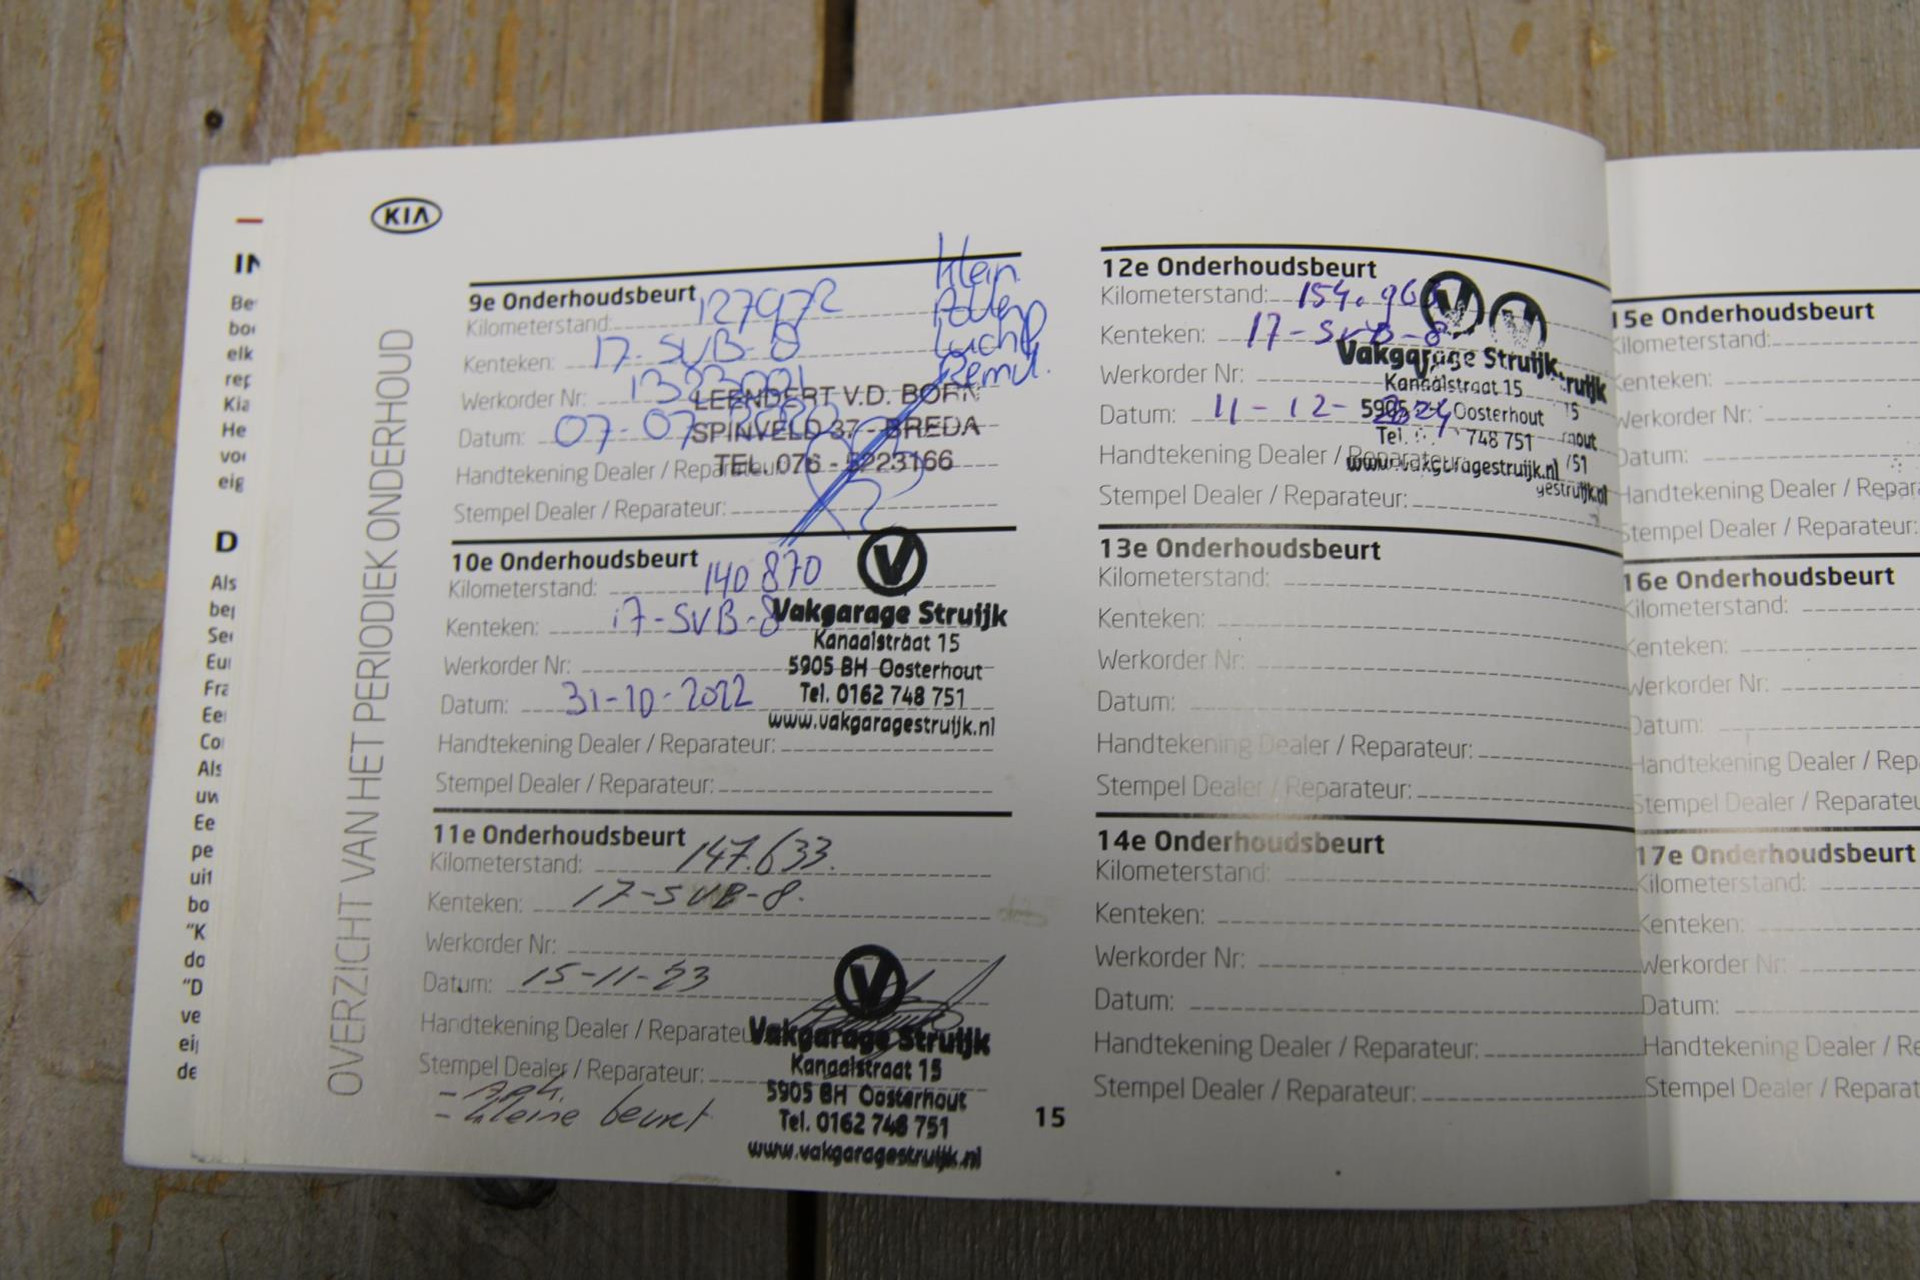 KIA
OVERZICHT VAN HET PERIODIEK ONDERHOUD
9e Onderhoudsbeurt
Kilometerstand: 127972
Kenteken: 17-SVB-8
Werkorder Nr:
Datum: 07-07
Handtekening Dealer / Reparateur:
Stempel Dealer / Reparateur:
Klein
LEENDERT V.D. BORN
SPINVELD 37 - BREDA
TEL. 076 - 5223166
10e Onderhoudsbeurt
Kilometerstand: 140870
Kenteken: 17-SVB-8
Werkorder Nr:
Datum: 31-10-2022
Handtekening Dealer / Reparateur:
Stempel Dealer / Reparateur:
V
Vakgarage Struijk
Kanaalstraat 15
5905 BH Oosterhout
Tel. 0162 748 751
www.vakgaragestruijk.nl
11e Onderhoudsbeurt
Kilometerstand: 147.633.
Kenteken: 17-SVB-8.
Werkorder Nr:
Datum: 15-11-23
Handtekening Dealer / Reparateur
Stempel Dealer / Reparateur:
- kleine beurt
V
Vakgarage Struijk
Kanaalstraat 15
5905 BH Oosterhout
Tel. 0162 748 751
www.vakgaragestruijk.nl
15
12e Onderhoudsbeurt
Kilometerstand: 154.96
Kenteken: 17-SVB-8
Werkorder Nr:
Datum: 11-12-
Handtekening Dealer / Reparateur:
Stempel Dealer / Reparateur:
V V
Vakgarage Struijk
Kanaalstraat 15
5905 Oosterhout
Tel. 748 751
www.vakgaragestruijk.nl
13e Onderhoudsbeurt
Kilometerstand:
Kenteken:
Werkorder Nr:
Datum:
Handtekening Dealer / Reparateur:
Stempel Dealer / Reparateur:
14e Onderhoudsbeurt
Kilometerstand:
Kenteken:
Werkorder Nr:
Datum:
Handtekening Dealer / Reparateur:
Stempel Dealer / Reparateur:
15e Onderhoudsbeurt
Kilometerstand:
Kenteken:
Werkorder Nr:
Datum:
Handtekening Dealer / Repar
Stempel Dealer / Reparateur:
16e Onderhoudsbeurt
Kilometerstand:
Kenteken:
Werkorder Nr:
Datum:
Handtekening Dealer / Rep
Stempel Dealer / Reparateu
17e Onderhoudsbeurt
Kilometerstand:
Kenteken:
Werkorder Nr:
Datum:
Handtekening Dealer / Re
Stempel Dealer / Reparat